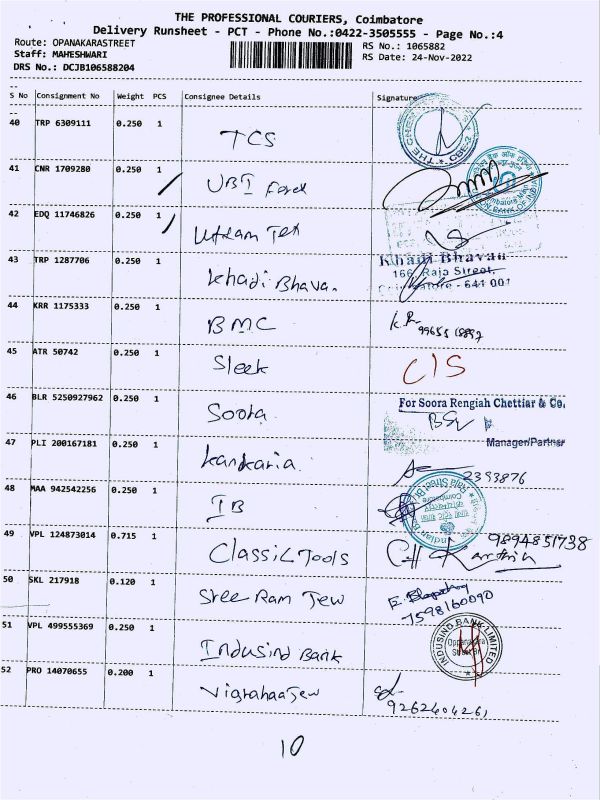 THE PROFESSIONAL COURIERS, Coimbatore
Delivery Runsheet - PCT - Phone No.:0422-3505555 - Page No.:4
Route: OPANAKARASTREET RS No.: 1065882
Staff: MAHESHWARI RS Date: 24-Nov-2022
DRS No.: DCJB106588204
S No Consignment No Weight PCS Consignee Details Signature
40 TRP 6309111 0.250 1 TCS
41 CNR 1709280 0.250 1 UBI Forex
42 EDQ 11746826 0.250 1 Uttam Tex
43 TRP 1287706 0.250 1 Khadi Bhavan
Khadi Bhavan
166, Raja Street,
Coimbatore - 641 001
44 KRR 1175333 0.250 1 BMC K.R.
45 ATR 50742 0.250 1 Sleek C/S
46 BLR 5250927962 0.250 1 Soora For Soora Rengiah Chettiar & Co.
Manager/Partner
47 PLI 200167181 0.250 1 Kankaria 2393876
48 MAA 942542256 0.250 1 IB
49 VPL 124873014 0.715 1 Classic Tools Karthik 9894851738
50 SKL 217918 0.120 1 Sree Ram Jew 7598160090
51 VPL 499555369 0.250 1 Indusind Bank INDUSIND BANK LIMITED
52 PRO 14070655 0.200 1 Vigrahaa Jew 9262404261
10